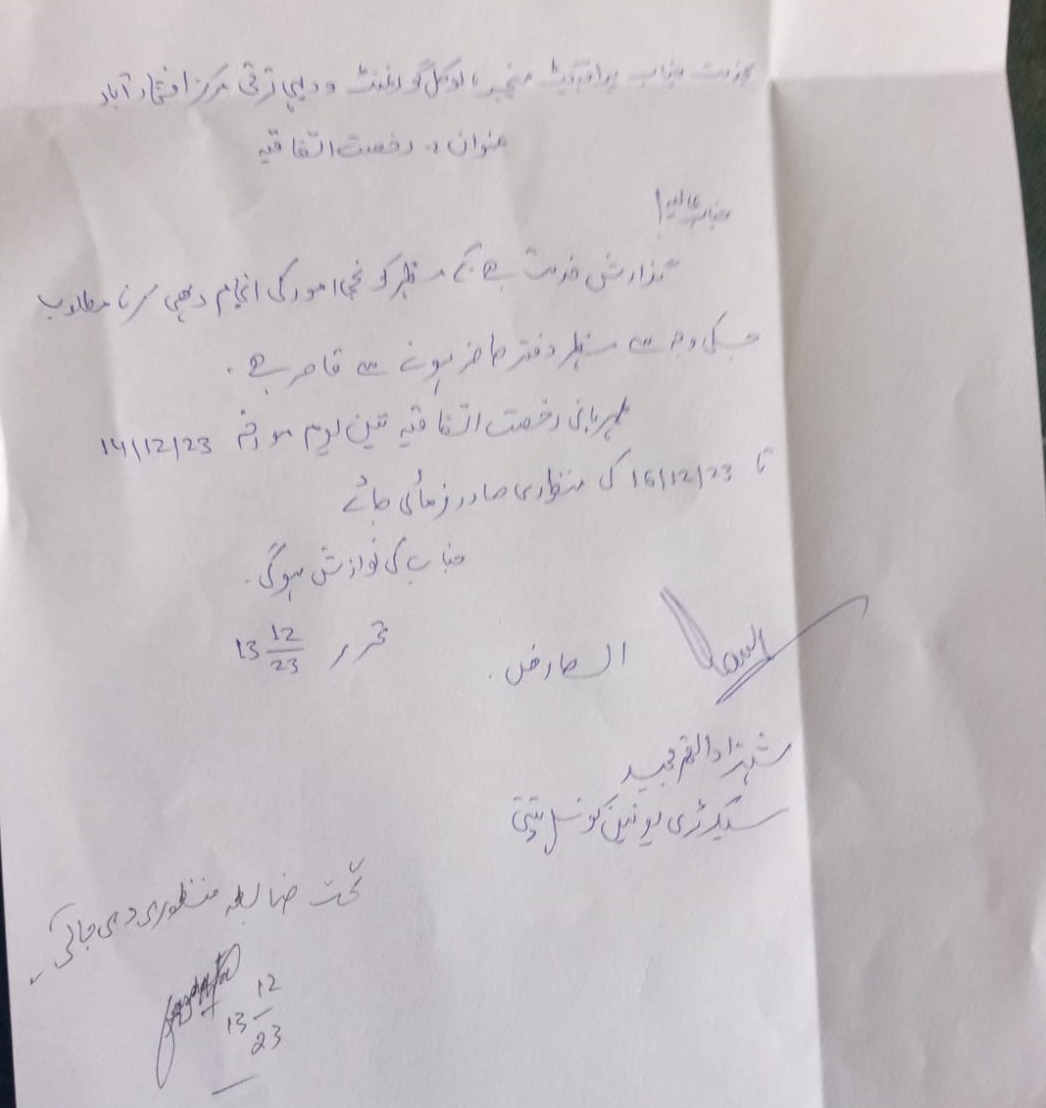 بخدمت جناب پراجیکٹ منیجر لوکل گورنمنٹ و دیہی ترقی مرکز افتخار آباد
عنوان :۔ رخصت اتفاقیہ
جناب عالیہ!
گزارش خدمت ہے کہ مظہر کو نجی امور کی انجام دھی کرنا مطلوب
جسکی وجہ سے مظہر دفتر حاضر ہونے سے قاصر ہے۔
مہربانی رخصت اتفاقیہ تین یوم مورخہ 14/12/23
تا 16/12/23 کی منظوری صادر فرمائی جائے
جناب کی نوازش ہوگی۔
تحریر 13 12/23
العارض۔
شہزاد القمر مجید
سیکرٹری یونین کونسل پتنی
تحت ضابطہ منظوری دی جاتی۔
13 12/23